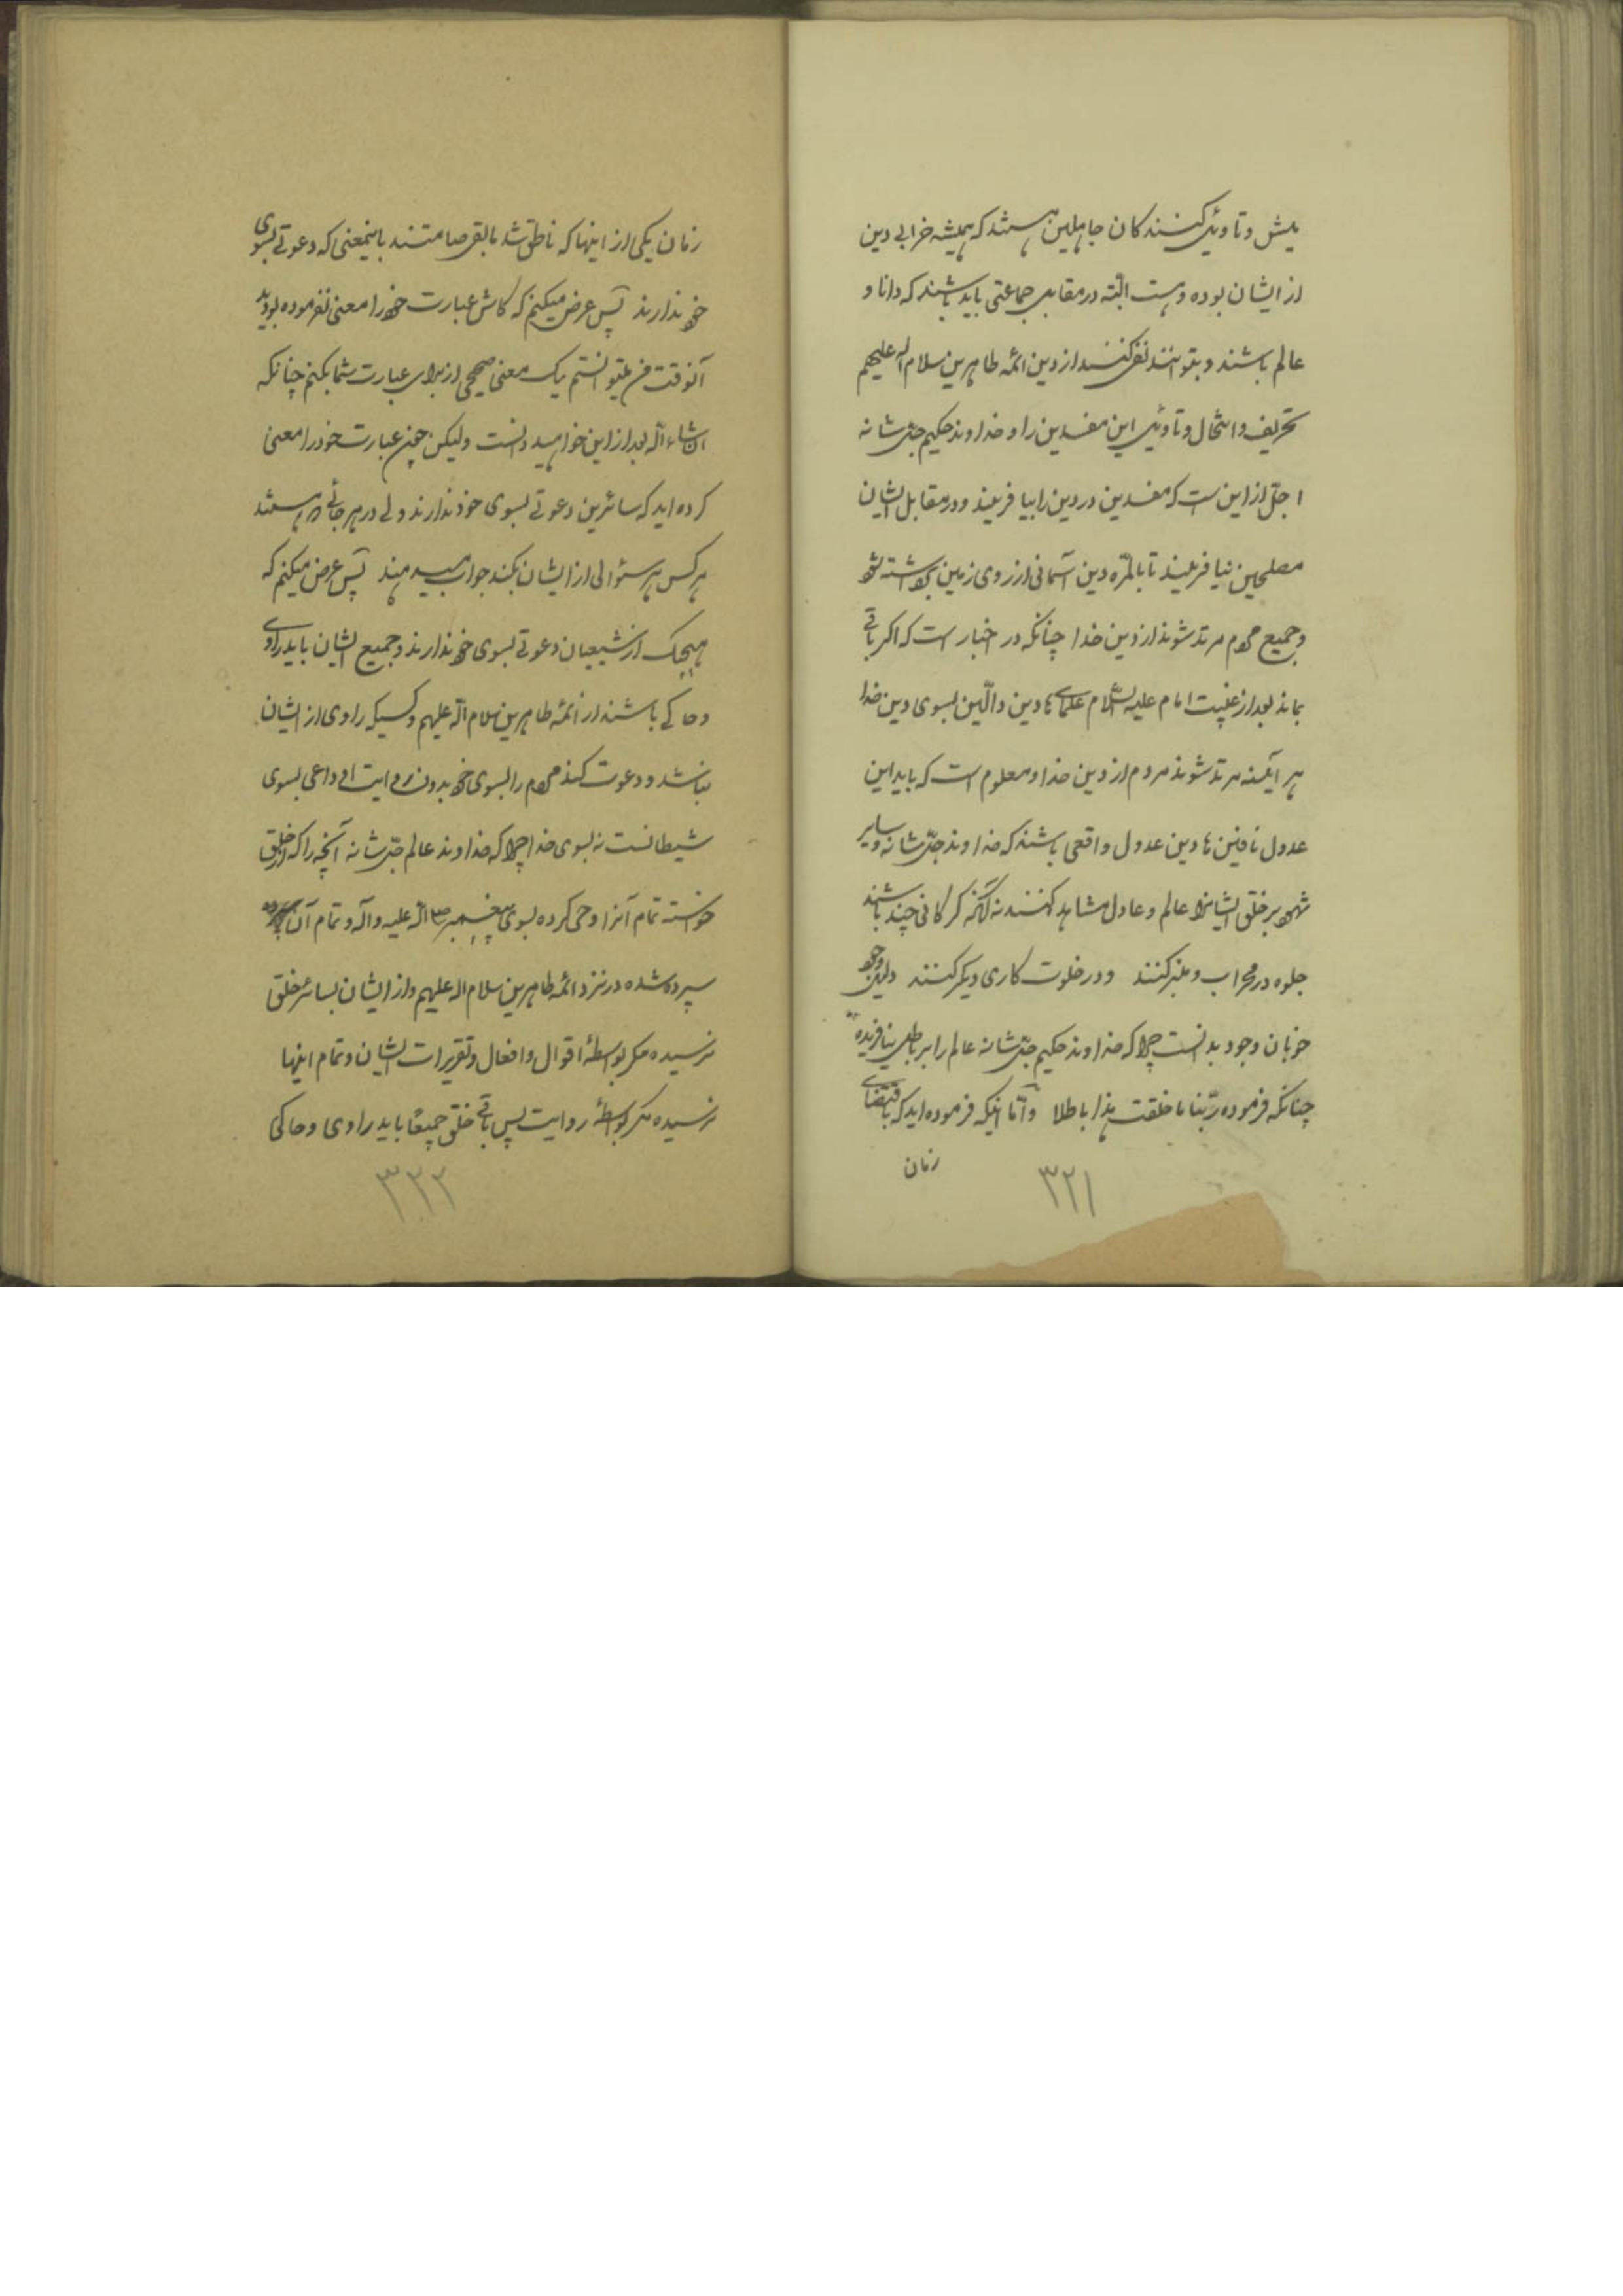 یش و تاویل کنندکان جاهلین هستند که همیشه خرابی دین
از ایشان بوده و هست البته در مقابل جماعتی باید باشند که دانا و
عالم باشند و بتوانند نفی کنند از دین ائمه طاهرین سلام الله علیهم
تحریف و انتحال و تاویل این مفسدین را و خداوند حکیم جل شانه
اجل از این ست که مفسدین در دین را بیافریند و در مقابل ایشان
مصلحین نیافریند تا بالمره دین آسمانی از روی زمین برداشته شود
و جمیع مردم مرتد شوند از دین خدا چنانکه در اخبار است که اکر باقی
نماند بعد از غیبت امام علیه السلام علمای هادین و دالّین بسوی دین خدا
هر آینه مرتد شوند مردم از دین خدا و معلوم است که باید این
عدول نافین هادین عدول واقعی باشند که خداوند جل شانه و سایر
شهود بر خلق ایشانرا عالم و عادل مشاهد کنند نه آنکه کرکانی چند باشند
جلوه در محراب و منبر کنند و در خلوت کاری دیکر کنند دلیل وجود
خوبان وجود بدانست چرا که خداوند حکیم جل شانه عالم را بر باطل نیافریده
چنانکه فرموده ربنا ما خلقت هذا باطلا و اما اینکه فرموده اید که باقتضای
زمان
۳۲۱
زمان یکی از اینها که ناطق شد مابقی صامتند باینمعنی که دعوتی بسوی
خود ندارند پس عرض میکنم که کاش عبارت خود را معنی نفرموده بودید
آنوقت من میتوانستم یک معنی صحیحی از برای عبارت شما بکنم چنانکه
انشاء الله بعد از این خواهید دانست ولیکن چنین عبارت خود را معنی
کرده اید که سائرین دعوتی بسوی خود ندارند ولی در هر جائی که هستند
هر کس هر سئوالی از ایشان بکند جواب میدهند پس عرض میکنم که
هیچیک از شیعیان دعوتی بسوی خود ندارند و جمیع ایشان باید راوی
و حاکی باشند از ائمه طاهرین سلام الله علیهم و کسیکه راوی از ایشان
نباشد و دعوت کند مردم را بسوی خود بدون روایت او داعی بسوی
شیطانست نه بسوی خدا چرا که خداوند عالم جل شانه آنچه را که از خلق
خواسته تمام آنرا وحی کرده بسوی پیغمبر صلی الله علیه و آله و تمام آن
سپرده شده در نزد ائمه طاهرین سلام الله علیهم و از ایشان بسائر خلق
نرسیده مکر بواسطۀ اقوال و افعال و تقریرات ایشان و تمام اینها
نرسیده مکر بواسطۀ روایت پس باقی خلق جمیعًا باید راوی و حاکی
۳۲۲